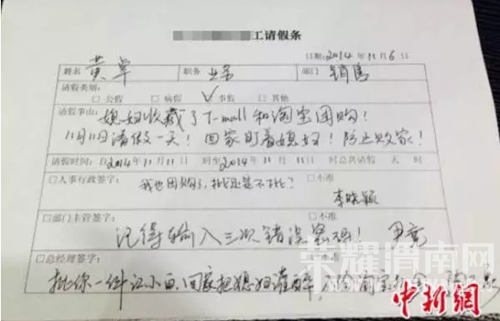 工请假条
日期:2014年11月6日
姓名 黄卓 职务 业务 部门 销售
请假类别:
□公假 □病假 ✓事假 □其他
请假事由: 媳妇收藏了T-mall和淘宝团购!
11月11日请假一天! 回家盯着媳妇! 防止败家!
请假时间: 自2014年11月11日 时至2014年11月11日 时总共请假 天 时
□人事行政签字: □不准
我也团购了, 批还是不批? 李晓颖
□部门主管签字: □不准
记得输入三次错误密码! 尹亮
□总经理签字:
批你一件江小白,回家把媳妇灌醉,
荣耀渭南网
中新网